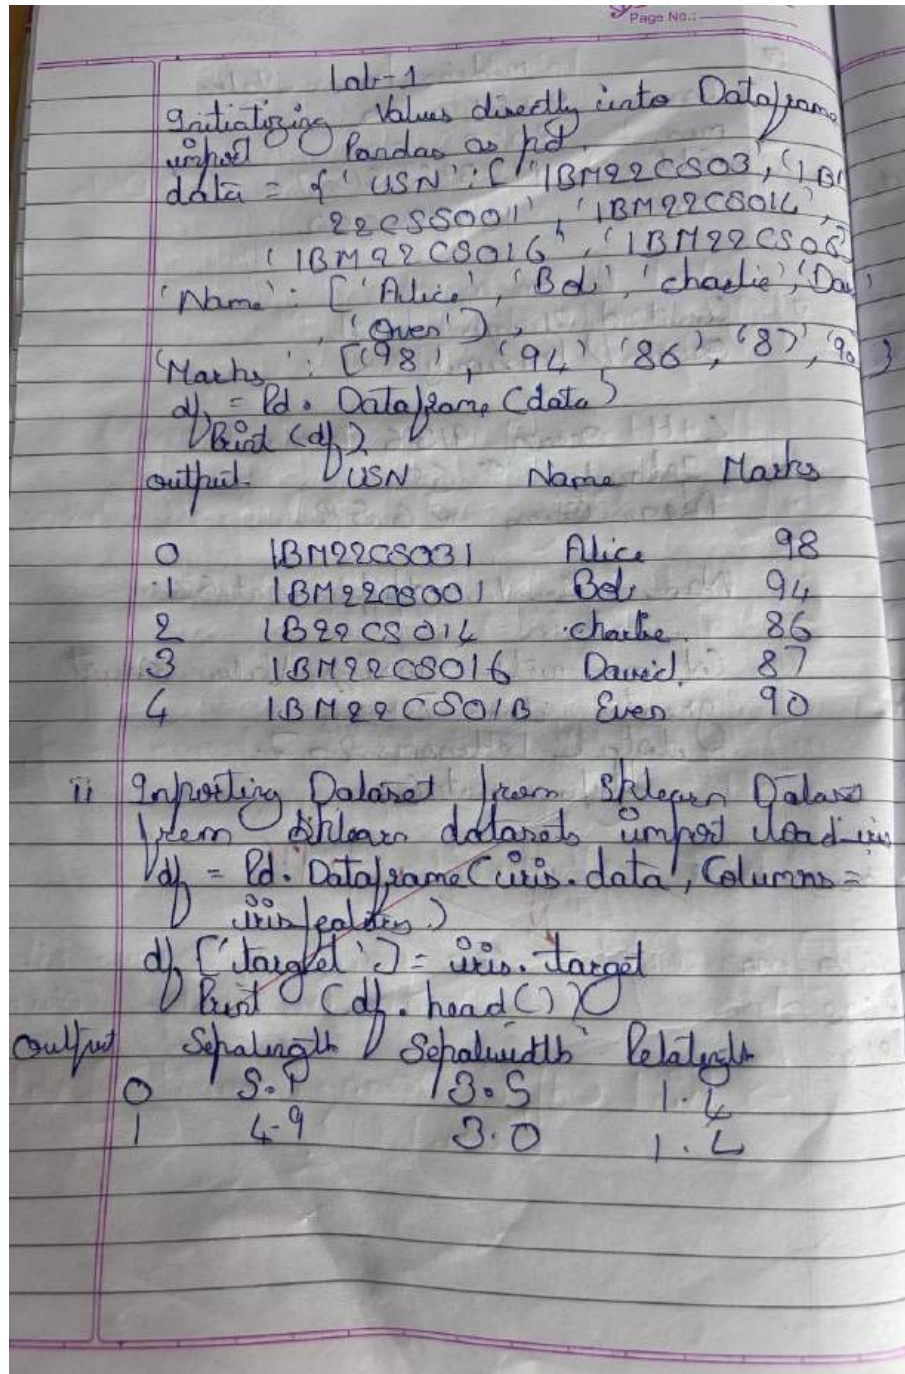 Page No.:
Lab-1
Initiatizing Values directly into Dataframe
import Pandas as pd.
data = { 'USN' : [ '1BM22CS03', '1B
22CSS001', '1BM22CS014',
'1BM22CS016', '1BM22CS06
'Name' : ['Alice', 'Bob', 'charlie', 'Dav
, 'Oven'],
'Marks' : ['98', '94', '86', '87', '90 ]
df = Pd. Dataframe (data)
Print (df)
output USN Name Marks
0 1BM22CS031 Alice 98
1 1BM22CS001 Bob 94
2 1B22CS014 charlie 86
3 1BM22CS016 David 87
4 1BM22CS01B Even 90
ii Importing Dataset from Sklearn Datase
from sklearn datasets import load-iris
df = Pd. Dataframe (iris.data, Columns =
iris )
df ['target'] = iris. target
Print (df. head())
Output Sepalength Sepalwidth Petalength
0 5.1 3.5 1.4
1 4.9 3.0 1.4